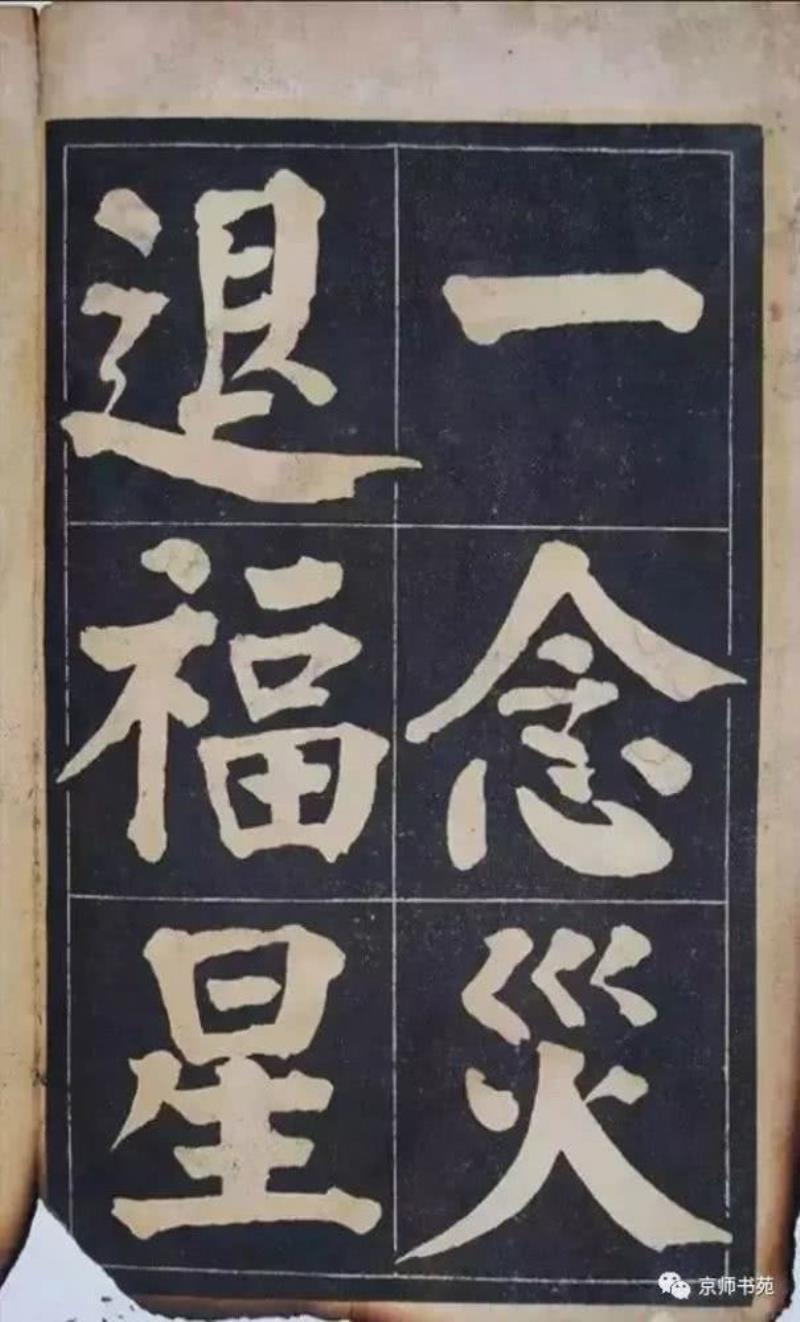 一念災
退福星
京师书苑